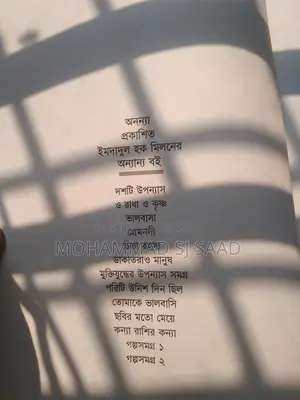 অনন্যা
প্রকাশিত
ইমদাদুল হক মিলনের
অন্যান্য বই
দশটি উপন্যাস
ও রাধা ও কৃষ্ণ
ভালবাসা
প্রেমনদী
MOHAMMAD SJ SAAD
ডাকাতরাও মানুষ
মুক্তিযুদ্ধের উপন্যাস সমগ্র
পরিটি উদিশ দিন ছিল
তোমাকে ভালবাসি
ছবির মতো মেয়ে
কন্যা রাশির কন্যা
গল্পসমগ্র ১
গল্পসমগ্র ২